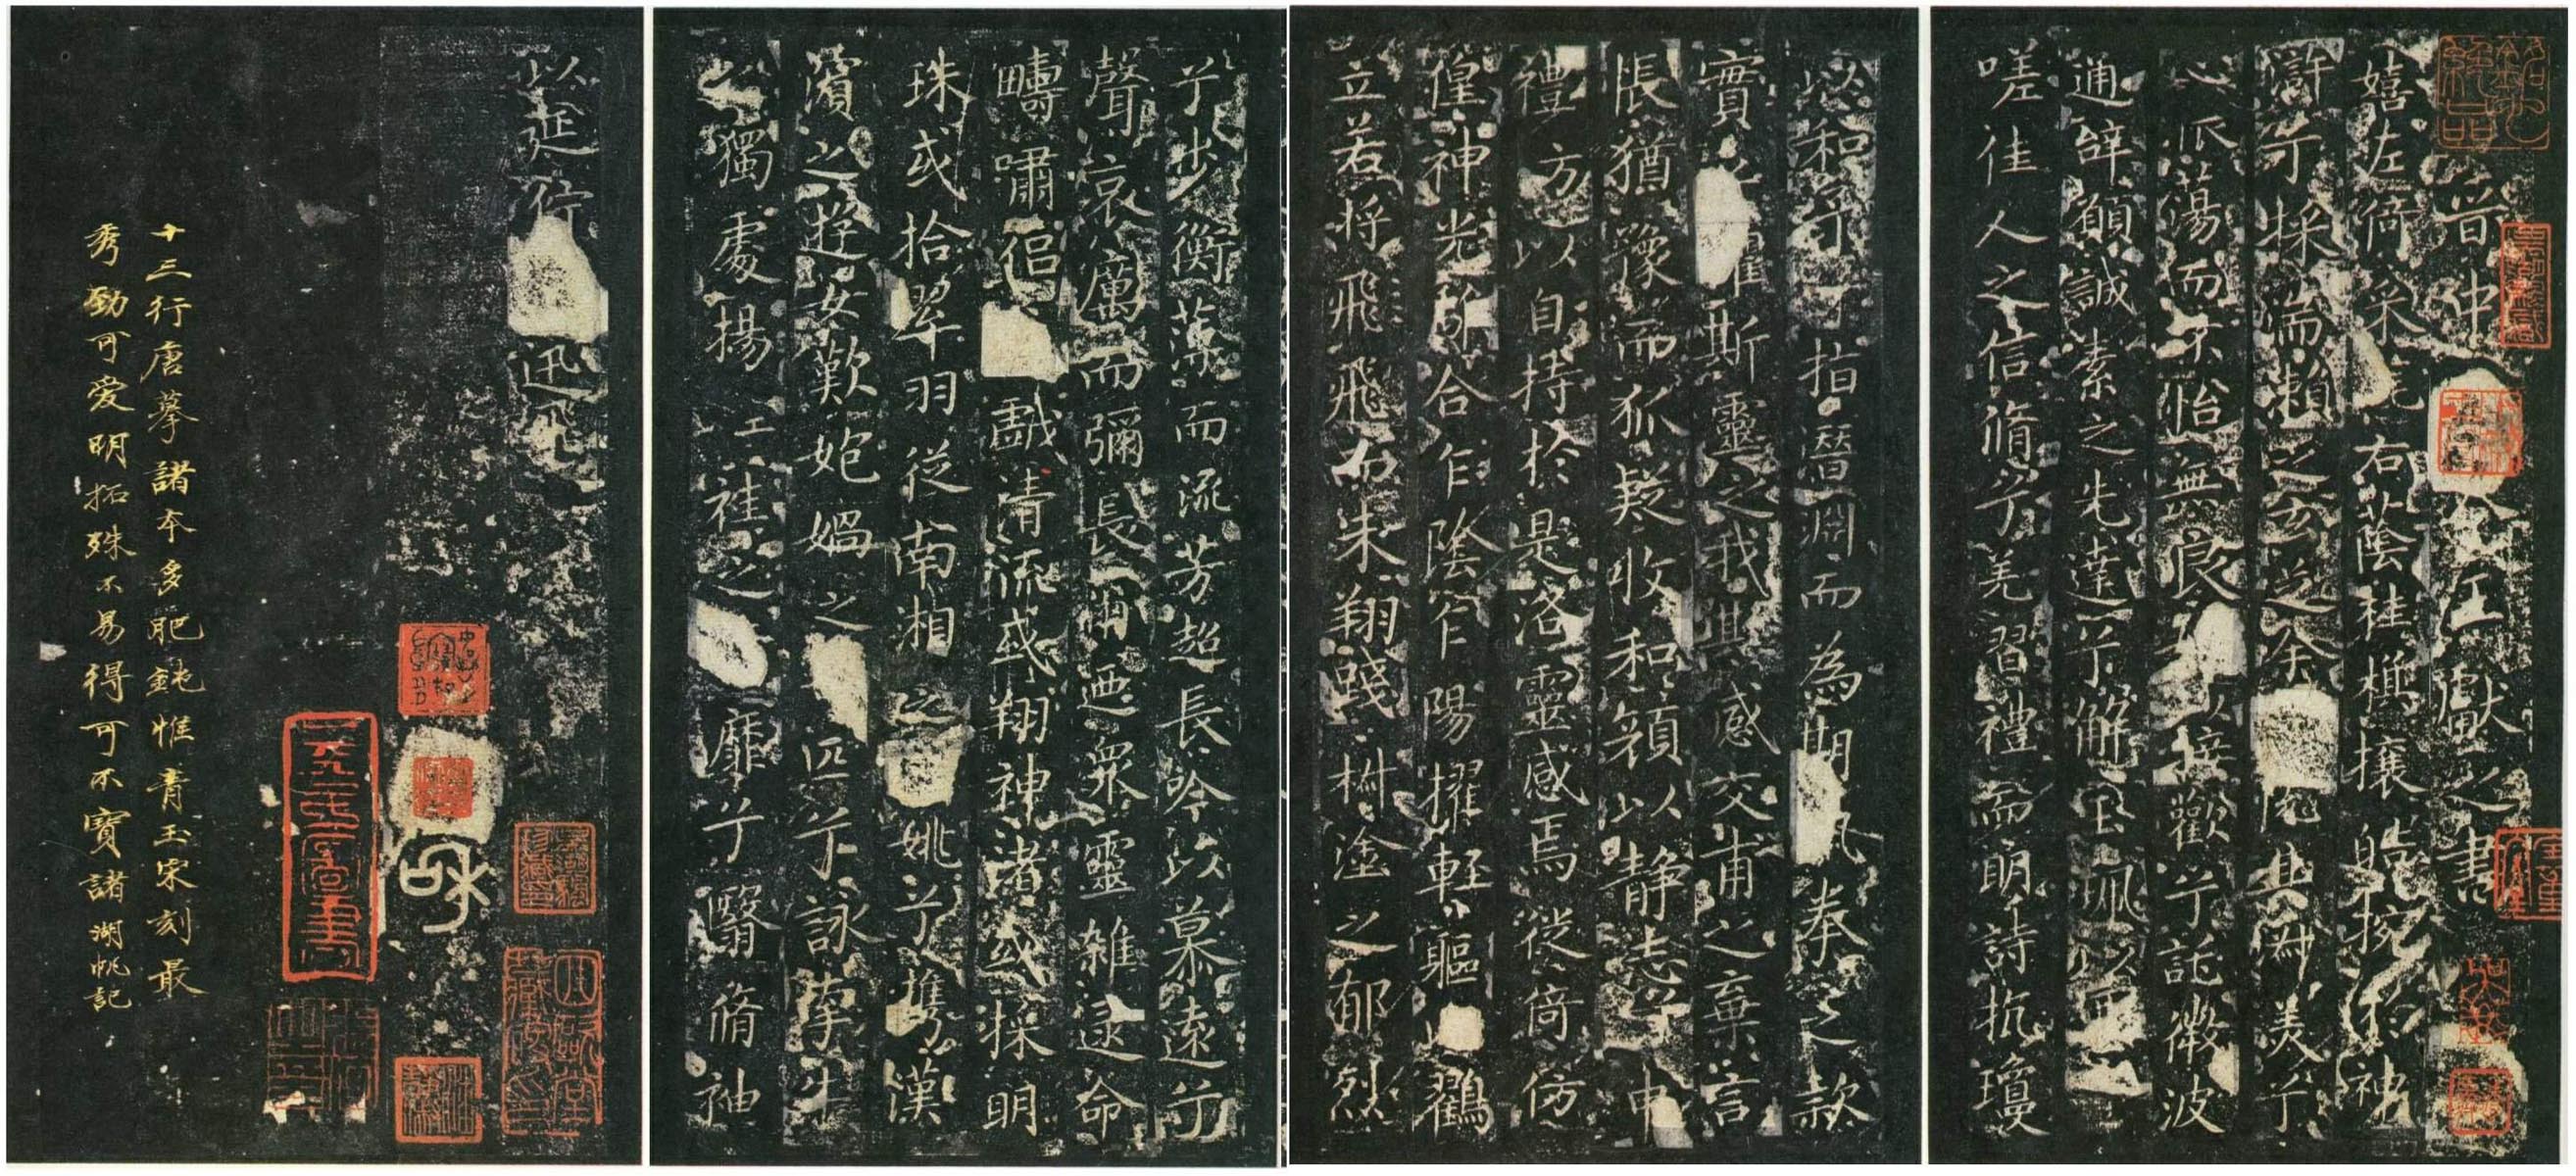 晉中王獻之書
嬉左倚采旄右蔭桂攘皓捥於神
滸兮採湍瀨之玄芝余悅其淑美兮
心振蕩而不怡無良以接歡兮託微波
通辭願誠素之先達兮解玉珮以要
嗟佳人之信脩兮羌習禮而明詩抗瓊
以和予兮指潛淵而為期執拳之款
實兮懼斯靈之我欺感交甫之棄言
悵猶豫而狐疑收和顏以靜志兮申
禮方以自持於是洛靈感焉徙倚仿
偟神光離合乍陰乍陽擢輕軀以鶴
立若將飛飛而未翔踐椒塗之郁烈
兮步衡薄而流芳超長吟以慕遠兮
聲哀厲而彌長爾迺眾靈雜遝命
疇嘯侶戲清流或翔神渚或採明
珠或拾翠羽從南湘之姚兮攜漢
濱之遊女歎匏媧之匹兮詠牽牛
之獨處揚輕袿之靡兮翳脩袖
以延佇迅飛
和
十三行唐摹諸本多肥鈍惟青玉宋刻最
秀勁可爱明拓殊不易得可不寶諸湖帆記